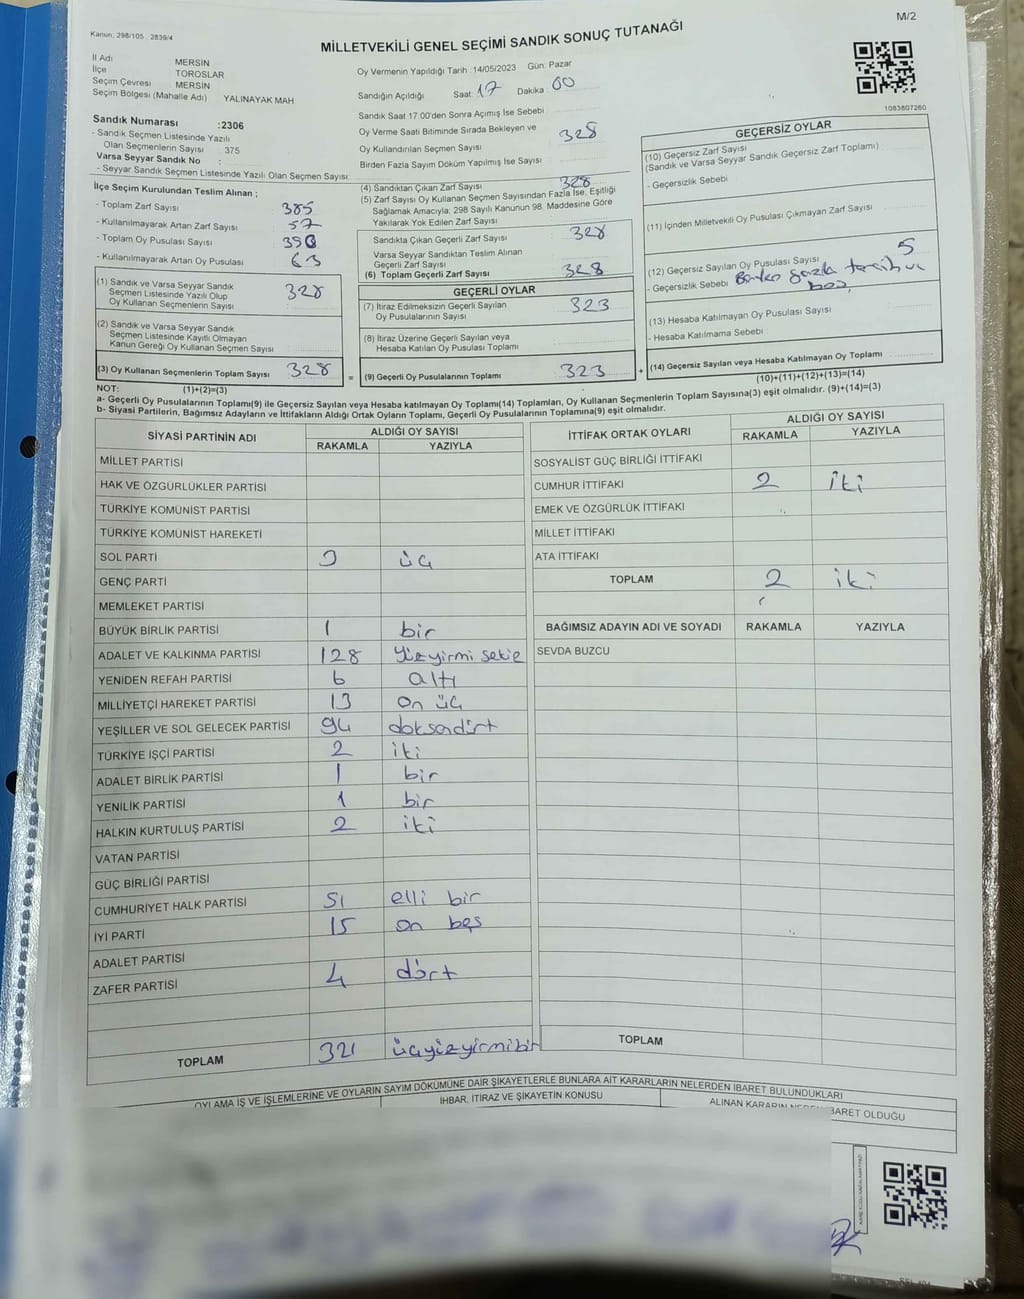 Kanun; 298/105 , 2839/4
M/2
MİLLETVEKİLİ GENEL SEÇİMİ SANDIK SONUÇ TUTANAĞI
İl Adı MERSİN
İlçe TOROSLAR
Seçim Çevresi MERSİN
Seçim Bölgesi (Mahalle Adı) YALINAYAK MAH
Sandık Numarası :2306
- Sandık Seçmen Listesinde Yazılı
Olan Seçmenlerin Sayısı 375
Varsa Seyyar Sandık No :
- Seyyar Sandık Seçmen Listesinde Yazılı Olan Seçmen Sayısı:
Oy Vermenin Yapıldığı Tarih :14/05/2023 Gün: Pazar
Sandığın Açıldığı Saat: 17 Dakika: 00
Sandık Saat 17.00'den Sonra Açımış İse Sebebi
Oy Verme Saati Bitiminde Sırada Bekleyen ve
Oy Kullandırılan Seçmen Sayısı 328
Birden Fazla Sayım Döküm Yapılmış İse Sayısı
1083807260
İlçe Seçim Kurulundan Teslim Alınan ;
- Toplam Zarf Sayısı 385
- Kullanılmayarak Artan Zarf Sayısı 57
- Toplam Oy Pusulası Sayısı 390
- Kullanılmayarak Artan Oy Pusulası 63
(1) Sandık ve Varsa Seyyar Sandık
Seçmen Listesinde Yazılı Olup
Oy Kullanan Seçmenlerin Sayısı 328
(2) Sandık ve Varsa Seyyar Sandık
Seçmen Listesinde Kayıtlı Olmayan
Kanun Gereği Oy Kullanan Seçmen Sayısı
(3) Oy Kullanan Seçmenlerin Toplam Sayısı 328
(4) Sandıktan Çıkan Zarf Sayısı 328
(5) Zarf Sayısı Oy Kullanan Seçmen Sayısından Fazla İse, Eşitliği
Sağlamak Amacıyla; 298 Sayılı Kanunun 98. Maddesine Göre
Yakılarak Yok Edilen Zarf Sayısı
Sandıkta Çıkan Geçerli Zarf Sayısı 328
Varsa Seyyar Sandıktan Teslim Alınan
Geçerli Zarf Sayısı
(6) Toplam Geçerli Zarf Sayısı 328
GEÇERLİ OYLAR
(7) İtiraz Edilmeksizin Geçerli Sayılan
Oy Pusulalarının Sayısı 323
(8) İtiraz Üzerine Geçerli Sayılan veya
Hesaba Katılan Oy Pusulası Toplamı
= (9) Geçerli Oy Pusulalarının Toplamı 323
GEÇERSİZ OYLAR
(10) Geçersiz Zarf Sayısı
(Sandık ve Varsa Seyyar Sandık Geçersiz Zarf Toplamı)
- Geçersizlik Sebebi
(11) İçinden Milletvekili Oy Pusulası Çıkmayan Zarf Sayısı
(12) Geçersiz Sayılan Oy Pusulası Sayısı 5
- Geçersizlik Sebebi Birden fazla tercih ve
boş
(13) Hesaba Katılmayan Oy Pusulası Sayısı
- Hesaba Katılmama Sebebi
+ (14) Geçersiz Sayılan veya Hesaba Katılmayan Oy Toplamı
(10)+(11)+(12)+(13)=(14)
NOT: (1)+(2)=(3)
a- Geçerli Oy Pusulalarının Toplamı(9) ile Geçersiz Sayılan veya Hesaba katılmayan Oy Toplamı(14) Toplamları, Oy Kullanan Seçmenlerin Toplam Sayısına(3) eşit olmalıdır. (9)+(14)=(3)
b- Siyasi Partilerin, Bağımsız Adayların ve İttifakların Aldığı Ortak Oyların Toplamı, Geçerli Oy Pusulalarının Toplamına(9) eşit olmalıdır.
SİYASİ PARTİNİN ADI ALDIĞI OY SAYISI
RAKAMLA YAZIYLA
MİLLET PARTİSİ
HAK VE ÖZGÜRLÜKLER PARTİSİ
TÜRKİYE KOMÜNİST PARTİSİ
TÜRKİYE KOMÜNİST HAREKETİ
SOL PARTİ 3 üç
GENÇ PARTİ
MEMLEKET PARTİSİ
BÜYÜK BİRLİK PARTİSİ 1 bir
ADALET VE KALKINMA PARTİSİ 128 Yüzyirmi sekiz
YENİDEN REFAH PARTİSİ 6 altı
MİLLİYETÇİ HAREKET PARTİSİ 13 on üç
YEŞİLLER VE SOL GELECEK PARTİSİ 94 doksandört
TÜRKİYE İŞÇİ PARTİSİ 2 iki
ADALET BİRLİK PARTİSİ 1 bir
YENİLİK PARTİSİ 1 bir
HALKIN KURTULUŞ PARTİSİ 2 iki
VATAN PARTİSİ
GÜÇ BİRLİĞİ PARTİSİ
CUMHURİYET HALK PARTİSİ 51 elli bir
İYİ PARTİ 15 on beş
ADALET PARTİSİ
ZAFER PARTİSİ 4 dört
TOPLAM 321 üçyüzyirmibir
İTTİFAK ORTAK OYLARI ALDIĞI OY SAYISI
RAKAMLA YAZIYLA
SOSYALİST GÜÇ BİRLİĞİ İTTİFAKI
CUMHUR İTTİFAKI 2 iki
EMEK VE ÖZGÜRLÜK İTTİFAKI
MİLLET İTTİFAKI
ATA İTTİFAKI
TOPLAM 2 iki
BAĞIMSIZ ADAYIN ADI VE SOYADI RAKAMLA YAZIYLA
SEVDA BUZCU
TOPLAM
OYLAMA İŞ VE İŞLEMLERİNE VE OYLARIN SAYIM DÖKÜMÜNE DAİR ŞİKAYETLERLE BUNLARA AİT KARARLARIN NELERDEN İBARET BULUNDUKLARI
İHBAR, İTİRAZ VE ŞİKAYETİN KONUSU
ALINAN KARARIN NEDEN İBARET OLDUĞU